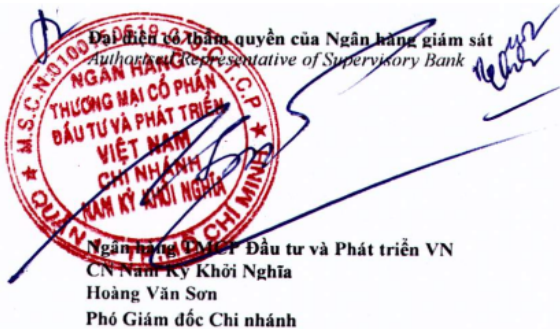 Đại diện có thẩm quyền của Ngân hàng giám sát
Authorised Representative of Supervisory Bank
NGÂN HÀNG
THƯƠNG MẠI CỔ PHẦN
ĐẦU TƯ VÀ PHÁT TRIỂN
VIỆT NAM
CHI NHÁNH
NAM KỲ KHỞI NGHĨA
M.S.C.N:0100
C.T.C.P
QUẬN
HỒ CHÍ MINH
Ngân hàng TMCP Đầu tư và Phát triển VN
CN Nam Kỳ Khởi Nghĩa
Hoàng Văn Sơn
Phó Giám đốc Chi nhánh